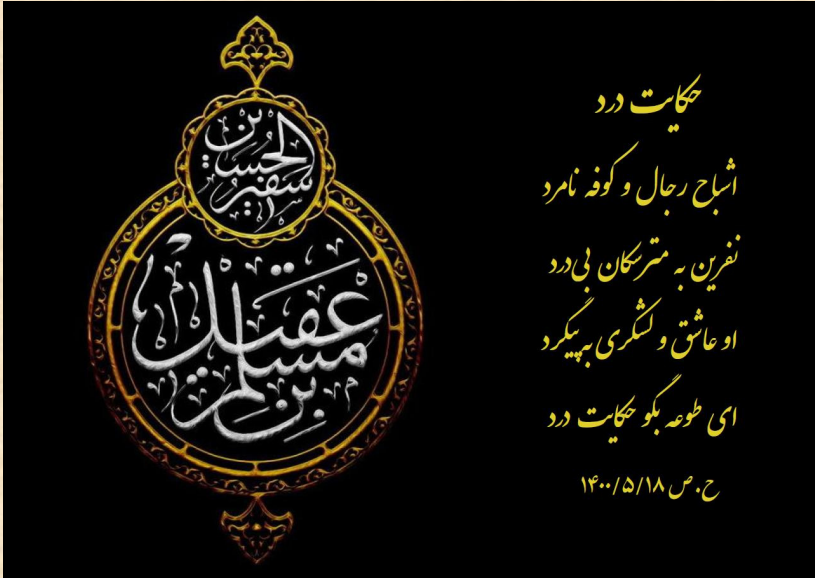 سفیر الحسین
مسلم بن عقیل
حکایت درد
اشباح رجال و کوفه نامرد
نفرین به مترسکان بی‌درد
او عاشق و لشکری به پیگرد
ای طوعه بگو حکایت درد
ح.ص ۱۴۰۰/۵/۱۸